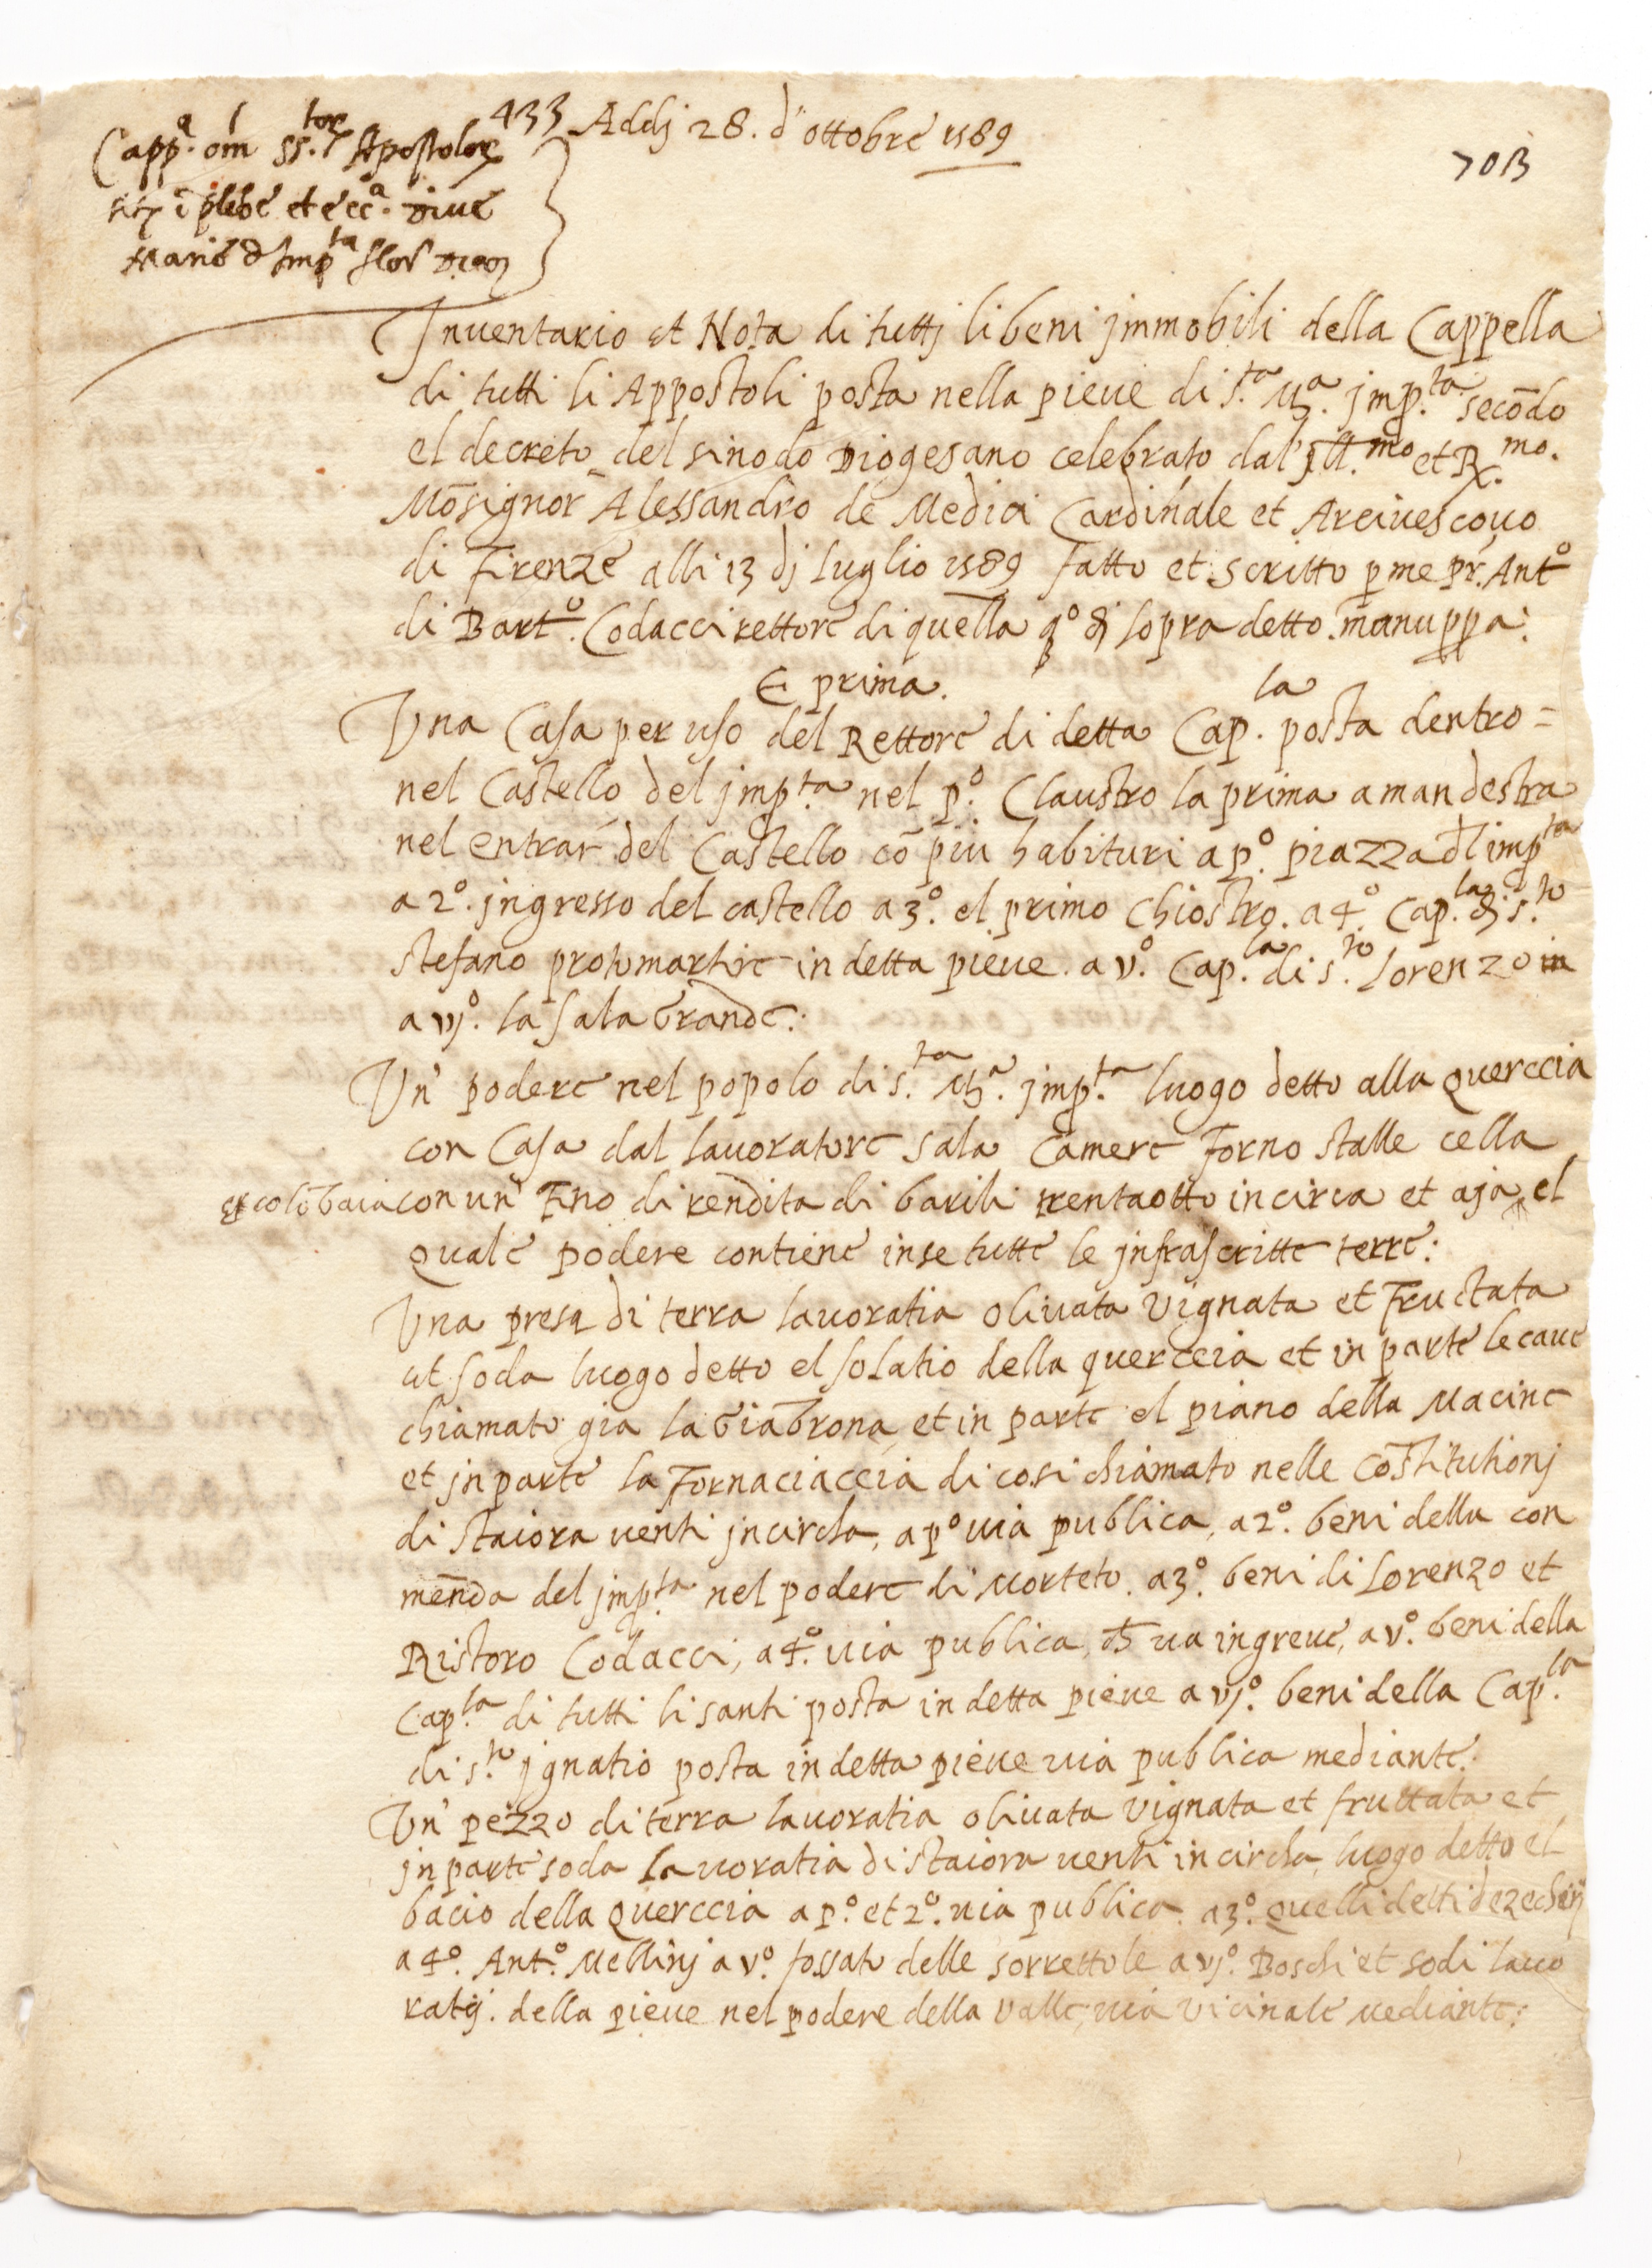 433 Addj 28. d'ottobre 1589
Capp.a om SS.tor Apostolor
plebe et ecc.a dive
Marie Imp.ta
Inuentario et Nota di tuttj li beni jmmobili della Cappella
di tutti li Appostoli posta nella pieue di s.ta Ma. jmp.ta secōdo
el decreto del sinodo Diogesano celebrato dal' Jll.mo et R.mo.
Mōsignor Alessandro de Medici Cardinale et Arciuescouo
di Firenze alli 13 dj luglio 1589 fatto et scritto p me pr. Ant.o
di Bart.o Codacci rettore di quella qo dj sopra detto. manuppa:
E prima.
Vna Casa per uso del Rettore di detta Cap.la posta dentro=
nel Castello del jmp.ta nel p.o Claustro la prima a man destra
nel entrar del Castello cō piu habituri a p.o piazza dl imp.ta
a 2o. jngresso del castello a 3o. el primo Chiostro. a 4o. Cap.la dj s.to
stefano protomartire in detta pieue. a vo. Cap.la di s.to Lorenzo
a vjo. la sala Grande:
Vn' podere nel popolo di s.ta Ma. jmp.ta luogo detto alla Querccia
con Casa dal lauoratore sala Camere Forno stalle cella
et colōbaia con un' Tino di rendita di barili trentaotto in circa et aja el
Quale podere contiene in se tutte le jnfrascritte terre:
Vna presa di terra lauoratia oliuata vignata et Fructata
et soda luogo detto el solatio della querccia et in parte le caue
chiamato gia la Giabrona et in parte el piano della Macine
et jn parte la Fornaciaccia di cosi chiamato nelle Cōstitutionj
di staiora uenti jncircha, a po uia publica, a 2o. beni della con
menda del jmp.ta nel podere di Morteto. a 3o. beni di Lorenzo et
Ristoro Codacci, a 4o. uia publica, ch ua ingreue, a vo. beni della
Cap.la di tutti li santi posta in detta pieue a vjo. beni della Cap.la
di s.to jgnatio posta in detta pieue uia publica mediante.
Vn' pezzo di terra lauoratia oliuata vignata et fruttata et
jn parte soda lauoratia di staiora uenti in circha luogo detto el
bacio della Querccia a p.o et 2o. uia publica. a 3o. Quelli detti
a 4o. Ant.o Mellinj a vo. fossato delle sorrettole a vjo. Boschi et sodi lauo
ratij. della pieue nel podere della valle, uia vicinale mediante: